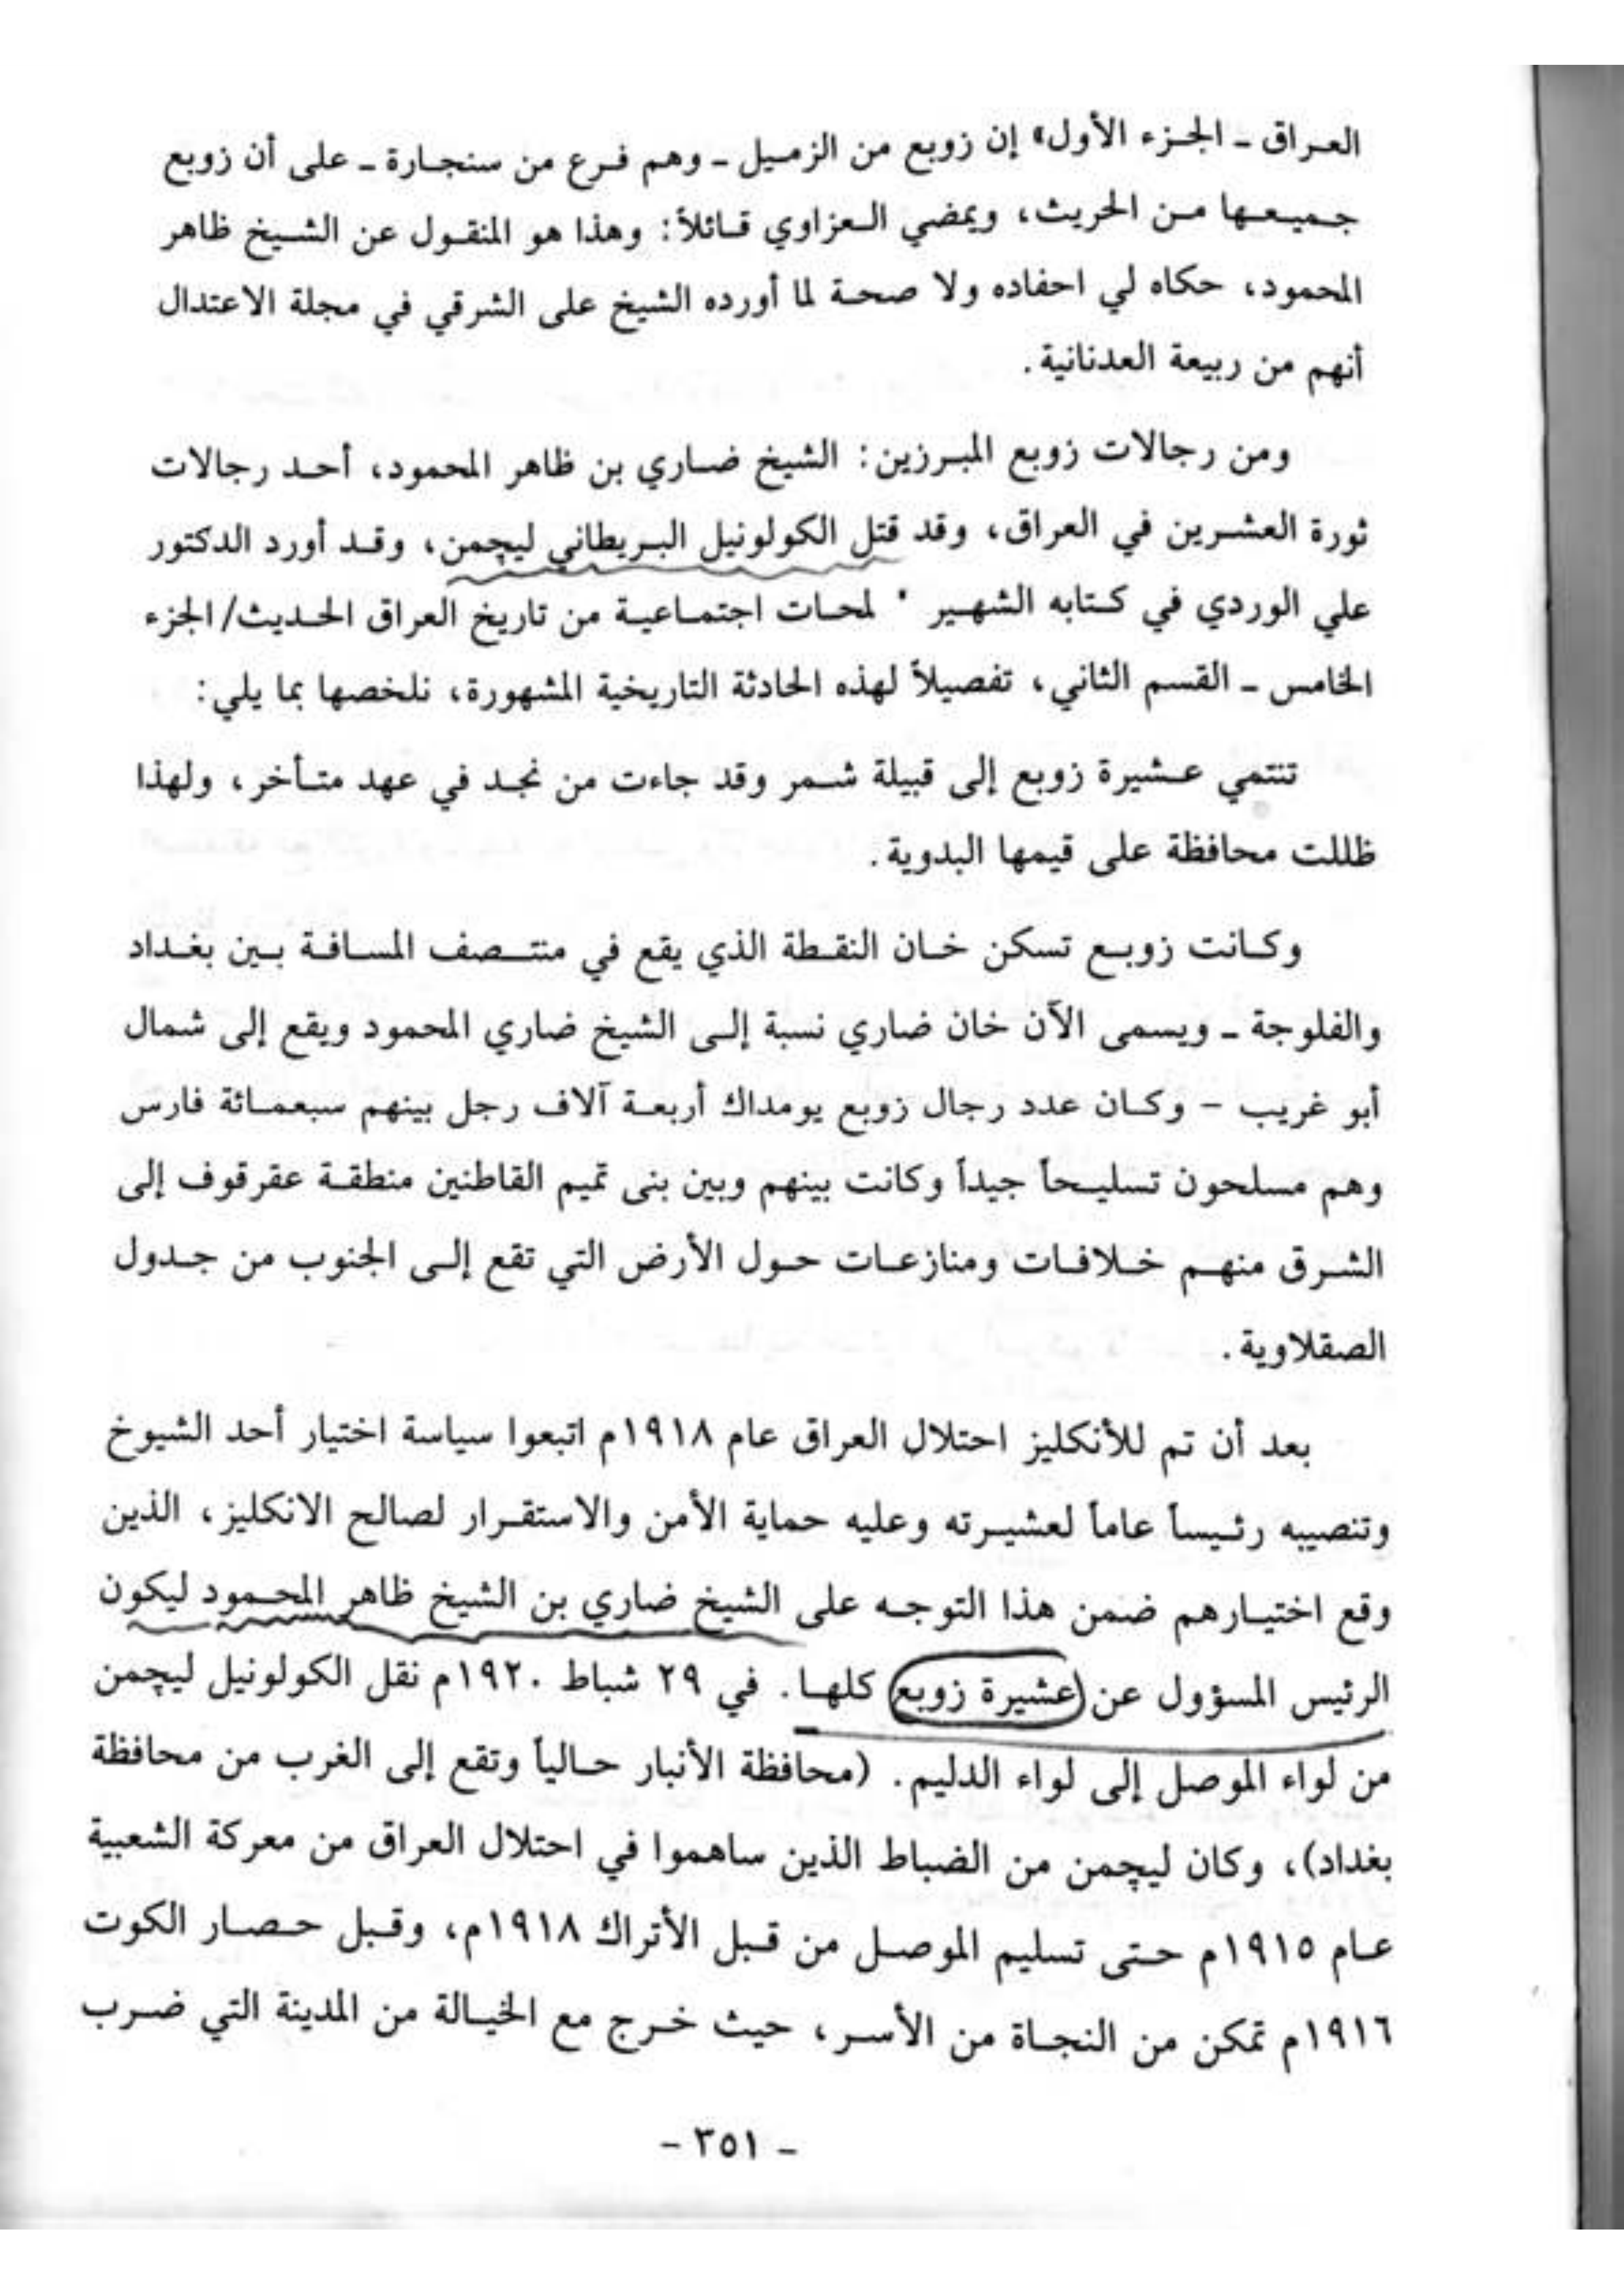 العراق ـ الجزء الأول» إن زوبع من الزميل ـ وهم فرع من سنجارة ـ على أن زوبع
جميعها من الحريث، ويمضي العزاوي قائلاً: وهذا هو المنقول عن الشيخ ظاهر
المحمود، حكاه لي احفاده ولا صحة لما أورده الشيخ على الشرقي في مجلة الاعتدال
أنهم من ربيعة العدنانية.
ومن رجالات زوبع المبرزين: الشيخ ضاري بن ظاهر المحمود، أحد رجالات
ثورة العشرين في العراق، وقد قتل الكولونيل البريطاني ليچمن، وقد أورد الدكتور
علي الوردي في كتابه الشهير " لمحات اجتماعية من تاريخ العراق الحديث/ الجزء
الخامس ـ القسم الثاني، تفصيلاً لهذه الحادثة التاريخية المشهورة، نلخصها بما يلي:
تنتمي عشيرة زوبع إلى قبيلة شمر وقد جاءت من نجد في عهد متأخر، ولهذا
ظللت محافظة على قيمها البدوية.
وكانت زوبع تسكن خان النقطة الذي يقع في منتصف المسافة بين بغداد
والفلوجة ـ ويسمى الآن خان ضاري نسبة إلى الشيخ ضاري المحمود ويقع إلى شمال
أبو غريب – وكان عدد رجال زوبع يومداك أربعة آلاف رجل بينهم سبعمائة فارس
وهم مسلحون تسليحاً جيداً وكانت بينهم وبين بنى تميم القاطنين منطقة عقرقوف إلى
الشرق منهم خلافات ومنازعات حول الأرض التي تقع إلى الجنوب من جدول
الصقلاوية.
بعد أن تم للأنكليز احتلال العراق عام ١٩١٨م اتبعوا سياسة اختيار أحد الشيوخ
وتنصيبه رئيساً عاماً لعشيرته وعليه حماية الأمن والاستقرار لصالح الانكليز، الذين
وقع اختيارهم ضمن هذا التوجه على الشيخ ضاري بن الشيخ ظاهر المحمود ليكون
الرئيس المسؤول عن عشيرة زوبع كلها. في ٢٩ شباط ١٩٢٠م نقل الكولونيل ليچمن
من لواء الموصل إلى لواء الدليم. (محافظة الأنبار حالياً وتقع إلى الغرب من محافظة
بغداد)، وكان ليچمن من الضباط الذين ساهموا في احتلال العراق من معركة الشعبية
عام ١٩١٥م حتى تسليم الموصل من قبل الأتراك ١٩١٨م، وقبل حصار الكوت
١٩١٦م تمكن من النجاة من الأسر، حيث خرج مع الخيالة من المدينة التي ضرب
- ٣٥١ -